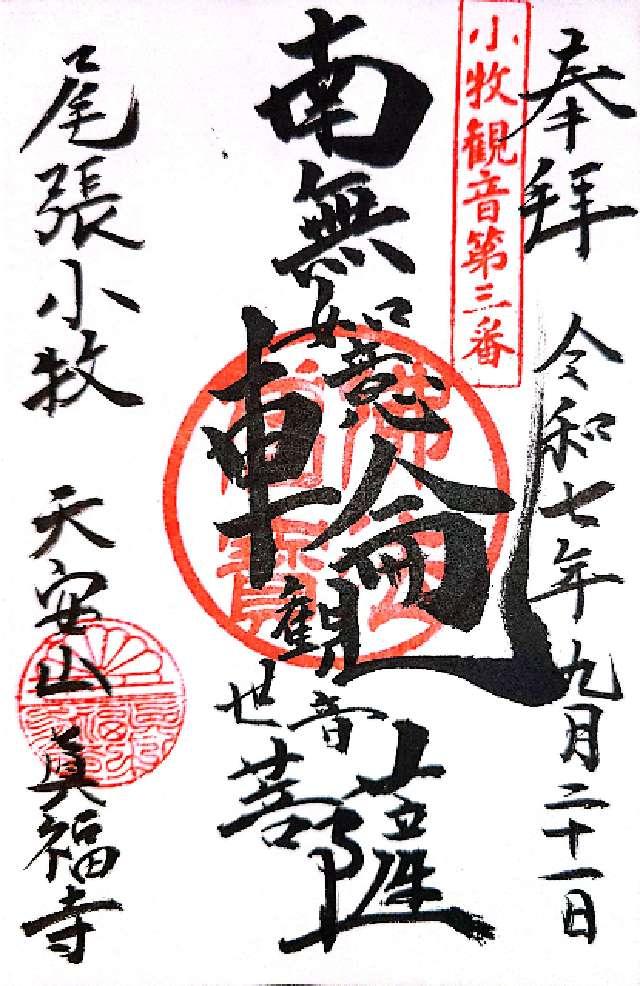 奉拝 令和七年九月二十一日
小牧観音第三番
南無如意輪観世音菩薩
尾張小牧 天安山 眞福寺